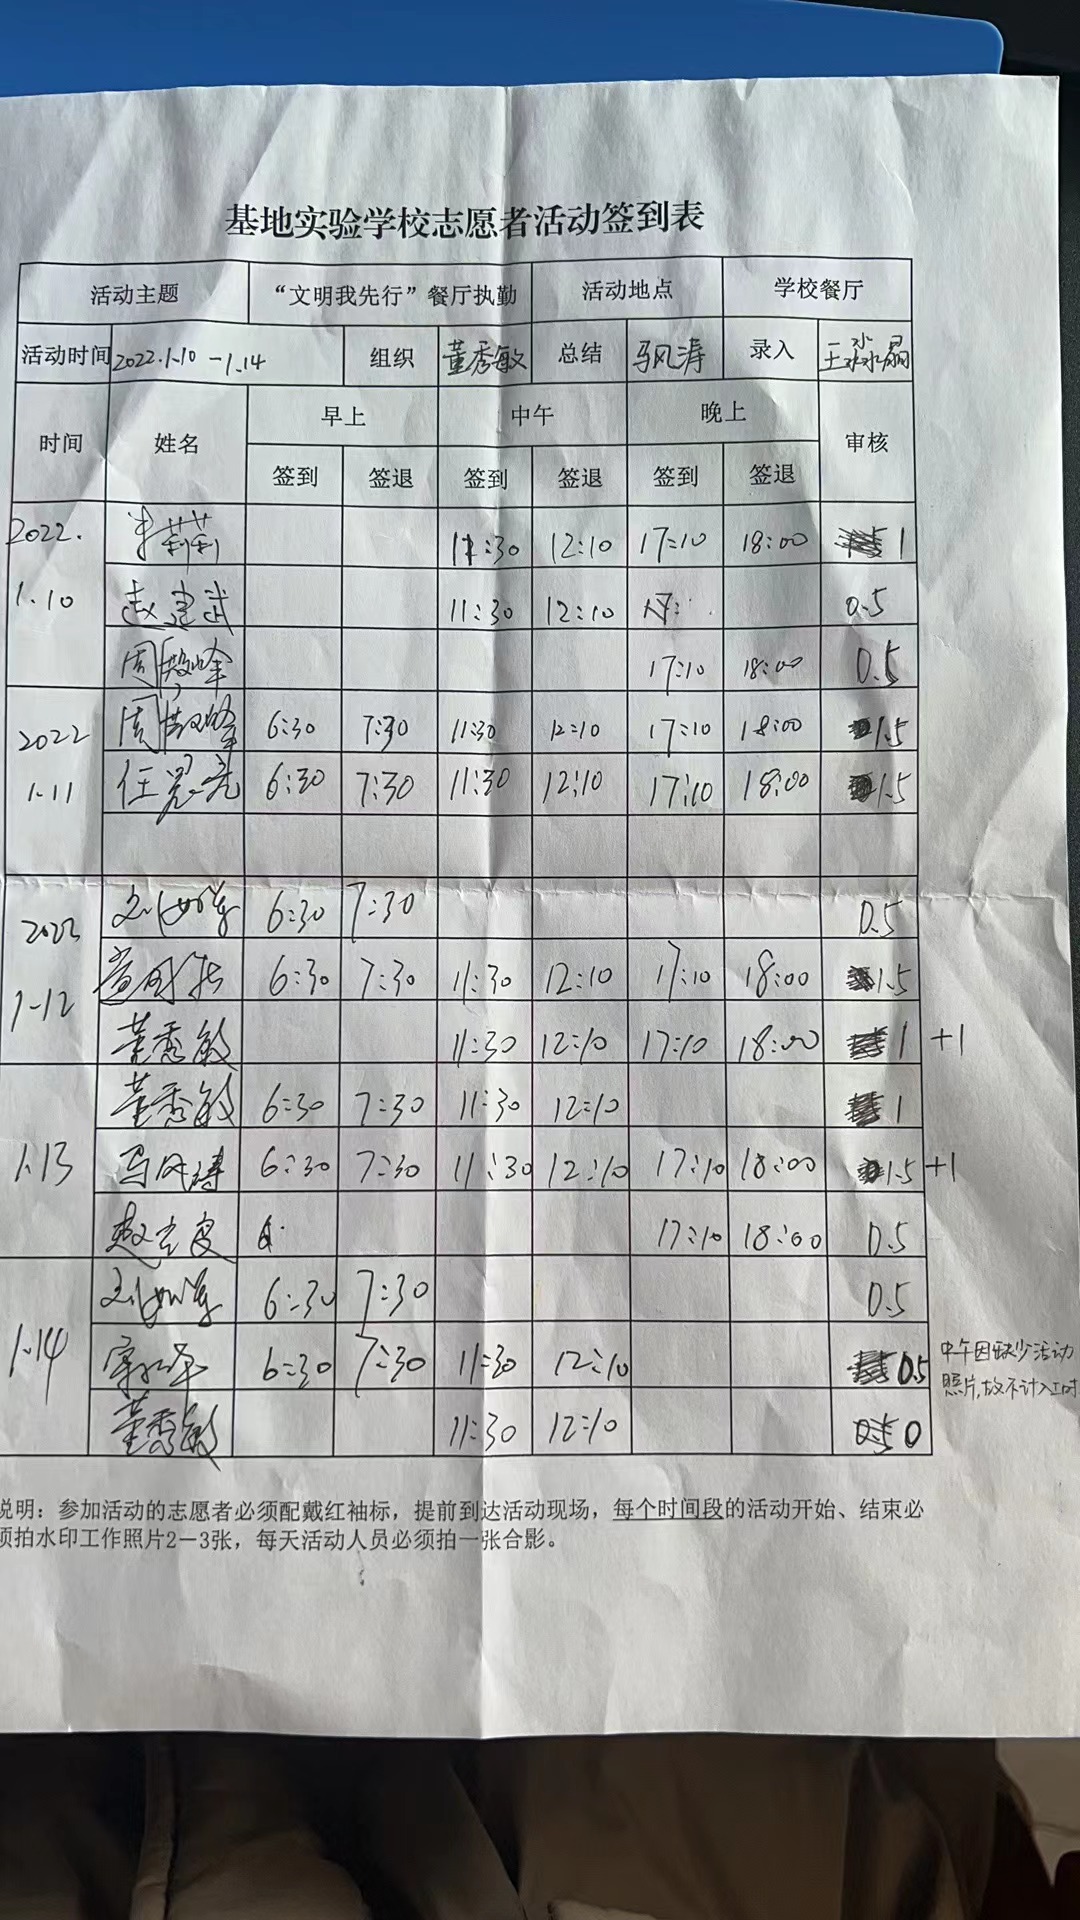 基地实验学校志愿者活动签到表
活动主题 “文明我先行”餐厅执勤 活动地点 学校餐厅
活动时间 2022.1.10-1.14 组织 董秀敏 总结 马风涛 录入 王淼晶
时间 姓名 早上 中午 晚上 审核
签到 签退 签到 签退 签到 签退
2022.
1.10
莉莉 11:30 12:10 17:10 18:00 1
赵建武 11:30 12:10 0.5
周峰 17:10 18:00 0.5
2022
1.11
周峰 6:30 7:30 11:30 12:10 17:10 18:00 1.5
任亮 6:30 7:30 11:30 12:10 17:10 18:00 1.5
2022
1-12
刘 6:30 7:30 0.5
6:30 7:30 11:30 12:10 17:10 18:00 1.5
董秀敏 11:30 12:10 17:10 18:00 1 +1
1.13
董秀敏 6:30 7:30 11:30 12:10 1
马风涛 6:30 7:30 11:30 12:10 17:10 18:00 1.5 +1
赵 17:10 18:00 0.5
1.14
刘 6:30 7:30 0.5
6:30 7:30 11:30 12:10 0.5
董秀敏 11:30 12:10 0
中午因缺少活动
照片,故不计入工时
说明：参加活动的志愿者必须配戴红袖标，提前到达活动现场，每个时间段的活动开始、结束必
须拍水印工作照片2—3张，每天活动人员必须拍一张合影。